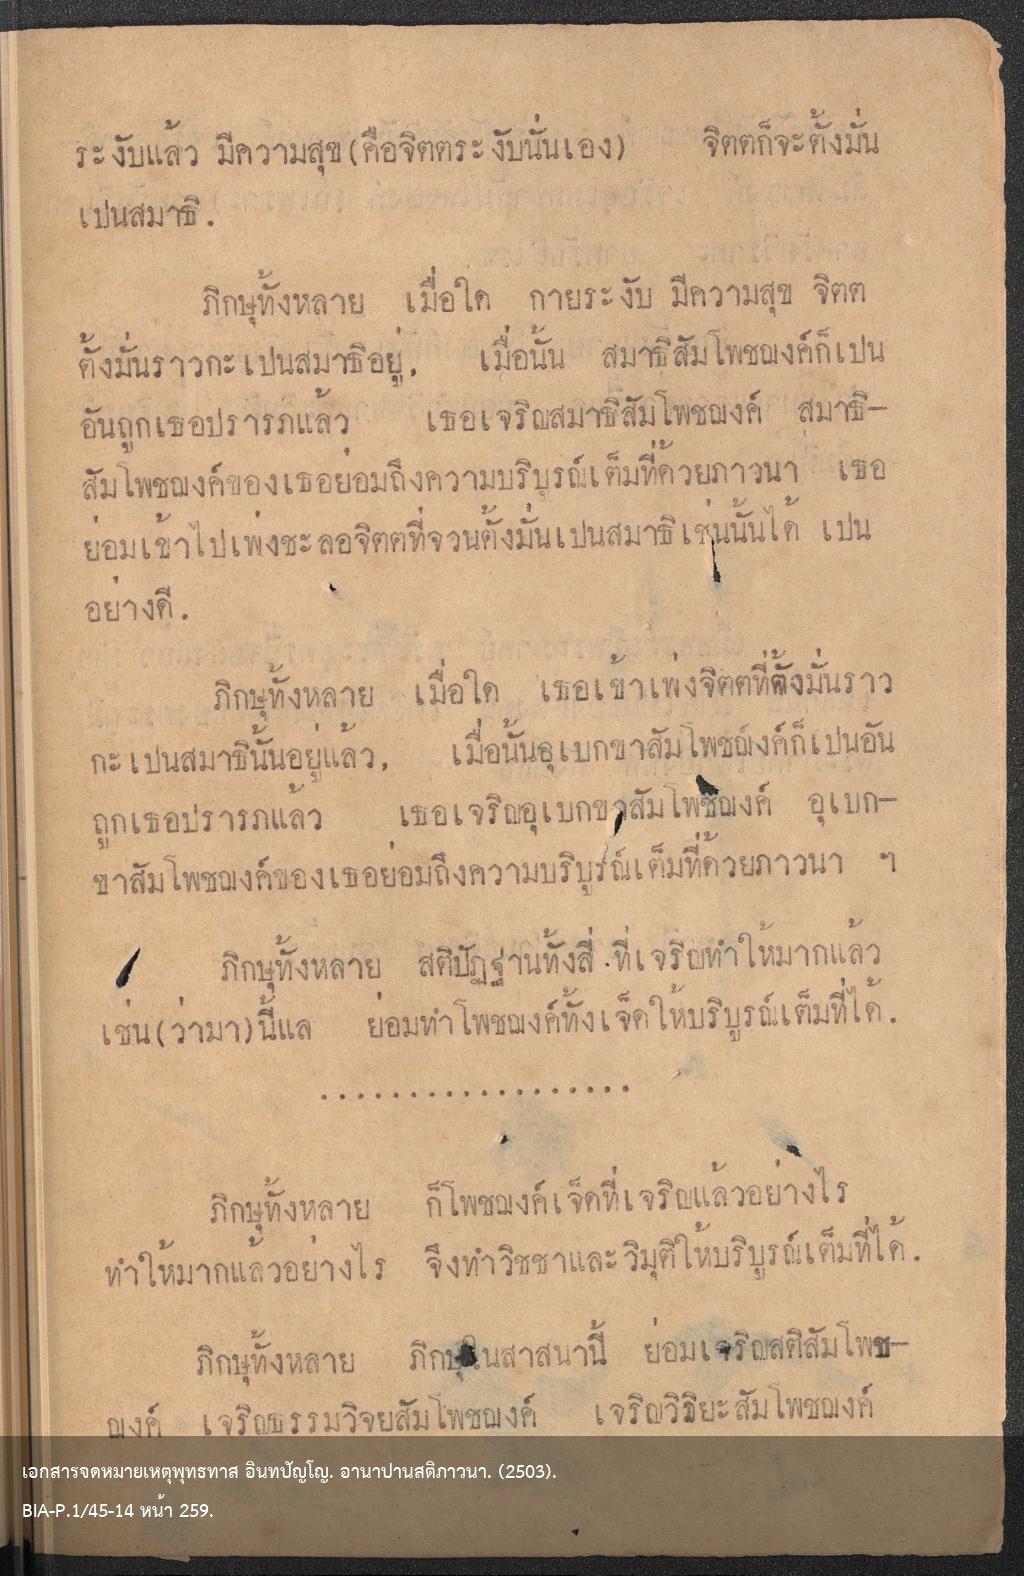 ระงับแล้ว มีความสุข(คือจิตตระงับนั่นเอง) จิตตก็จะตั้งมั่น
เปนสมาธิ.
ภิกษุทั้งหลาย เมื่อใด กายระงับ มีความสุข จิตต
ตั้งมั่นราวกะเปนสมาธิอยู่, เมื่อนั้น สมาธิสัมโพชฌงค์ก็เปน
อันถูกเธอปรารภแล้ว เธอเจริญสมาธิสัมโพชฌงค์ สมาธิ-
สัมโพชฌงค์ของเธอย่อมถึงความบริบูรณ์เต็มที่ด้วยภาวนา เธอ
ย่อมเข้าไปเพ่งชะลอจิตตที่จวนตั้งมั่นเปนสมาธิเช่นนั้นได้ เปน
อย่างดี.
ภิกษุทั้งหลาย เมื่อใด เธอเข้าเพ่งจิตตที่ตั้งมั่นราว
กะเปนสมาธินั้นอยู่แล้ว, เมื่อนั้นอุเบกขาสัมโพชฌ์งค์ก็เปนอัน
ถูกเธอปรารภแล้ว เธอเจริญอุเบกขาสัมโพชฌงค์ อุเบก-
ขาสัมโพชฌงค์ของเธอย่อมถึงความบริบูรณ์เต็มที่ด้วยภาวนา ฯ
ภิกษุทั้งหลาย สติปัฏฐานทั้งสี่ ที่เจริญทำให้มากแล้ว
เช่น(ว่ามา)นี้แล ย่อมทำโพชฌงค์ทั้งเจ็ดให้บริบูรณ์เต็มที่ได้.
..................
ภิกษุทั้งหลาย ก็โพชฌงค์เจ็ดที่เจริญแล้วอย่างไร
ทำให้มากแล้วอย่างไร จึงทำวิชชาและวิมุติให้บริบูรณ์เต็มที่ได้.
ภิกษุทั้งหลาย ภิกษุในสาสนานี้ ย่อมเจริญสติสัมโพช-
ฌงค์ เจริญธรรมวิจยสัมโพชฌงค์ เจริญวิริยะสัมโพชฌงค์
เอกสารจดหมายเหตุพุทธทาส อินทปัญโญ. อานาปานสติภาวนา. (2503).
BIA-P.1/45-14 หน้า 259.